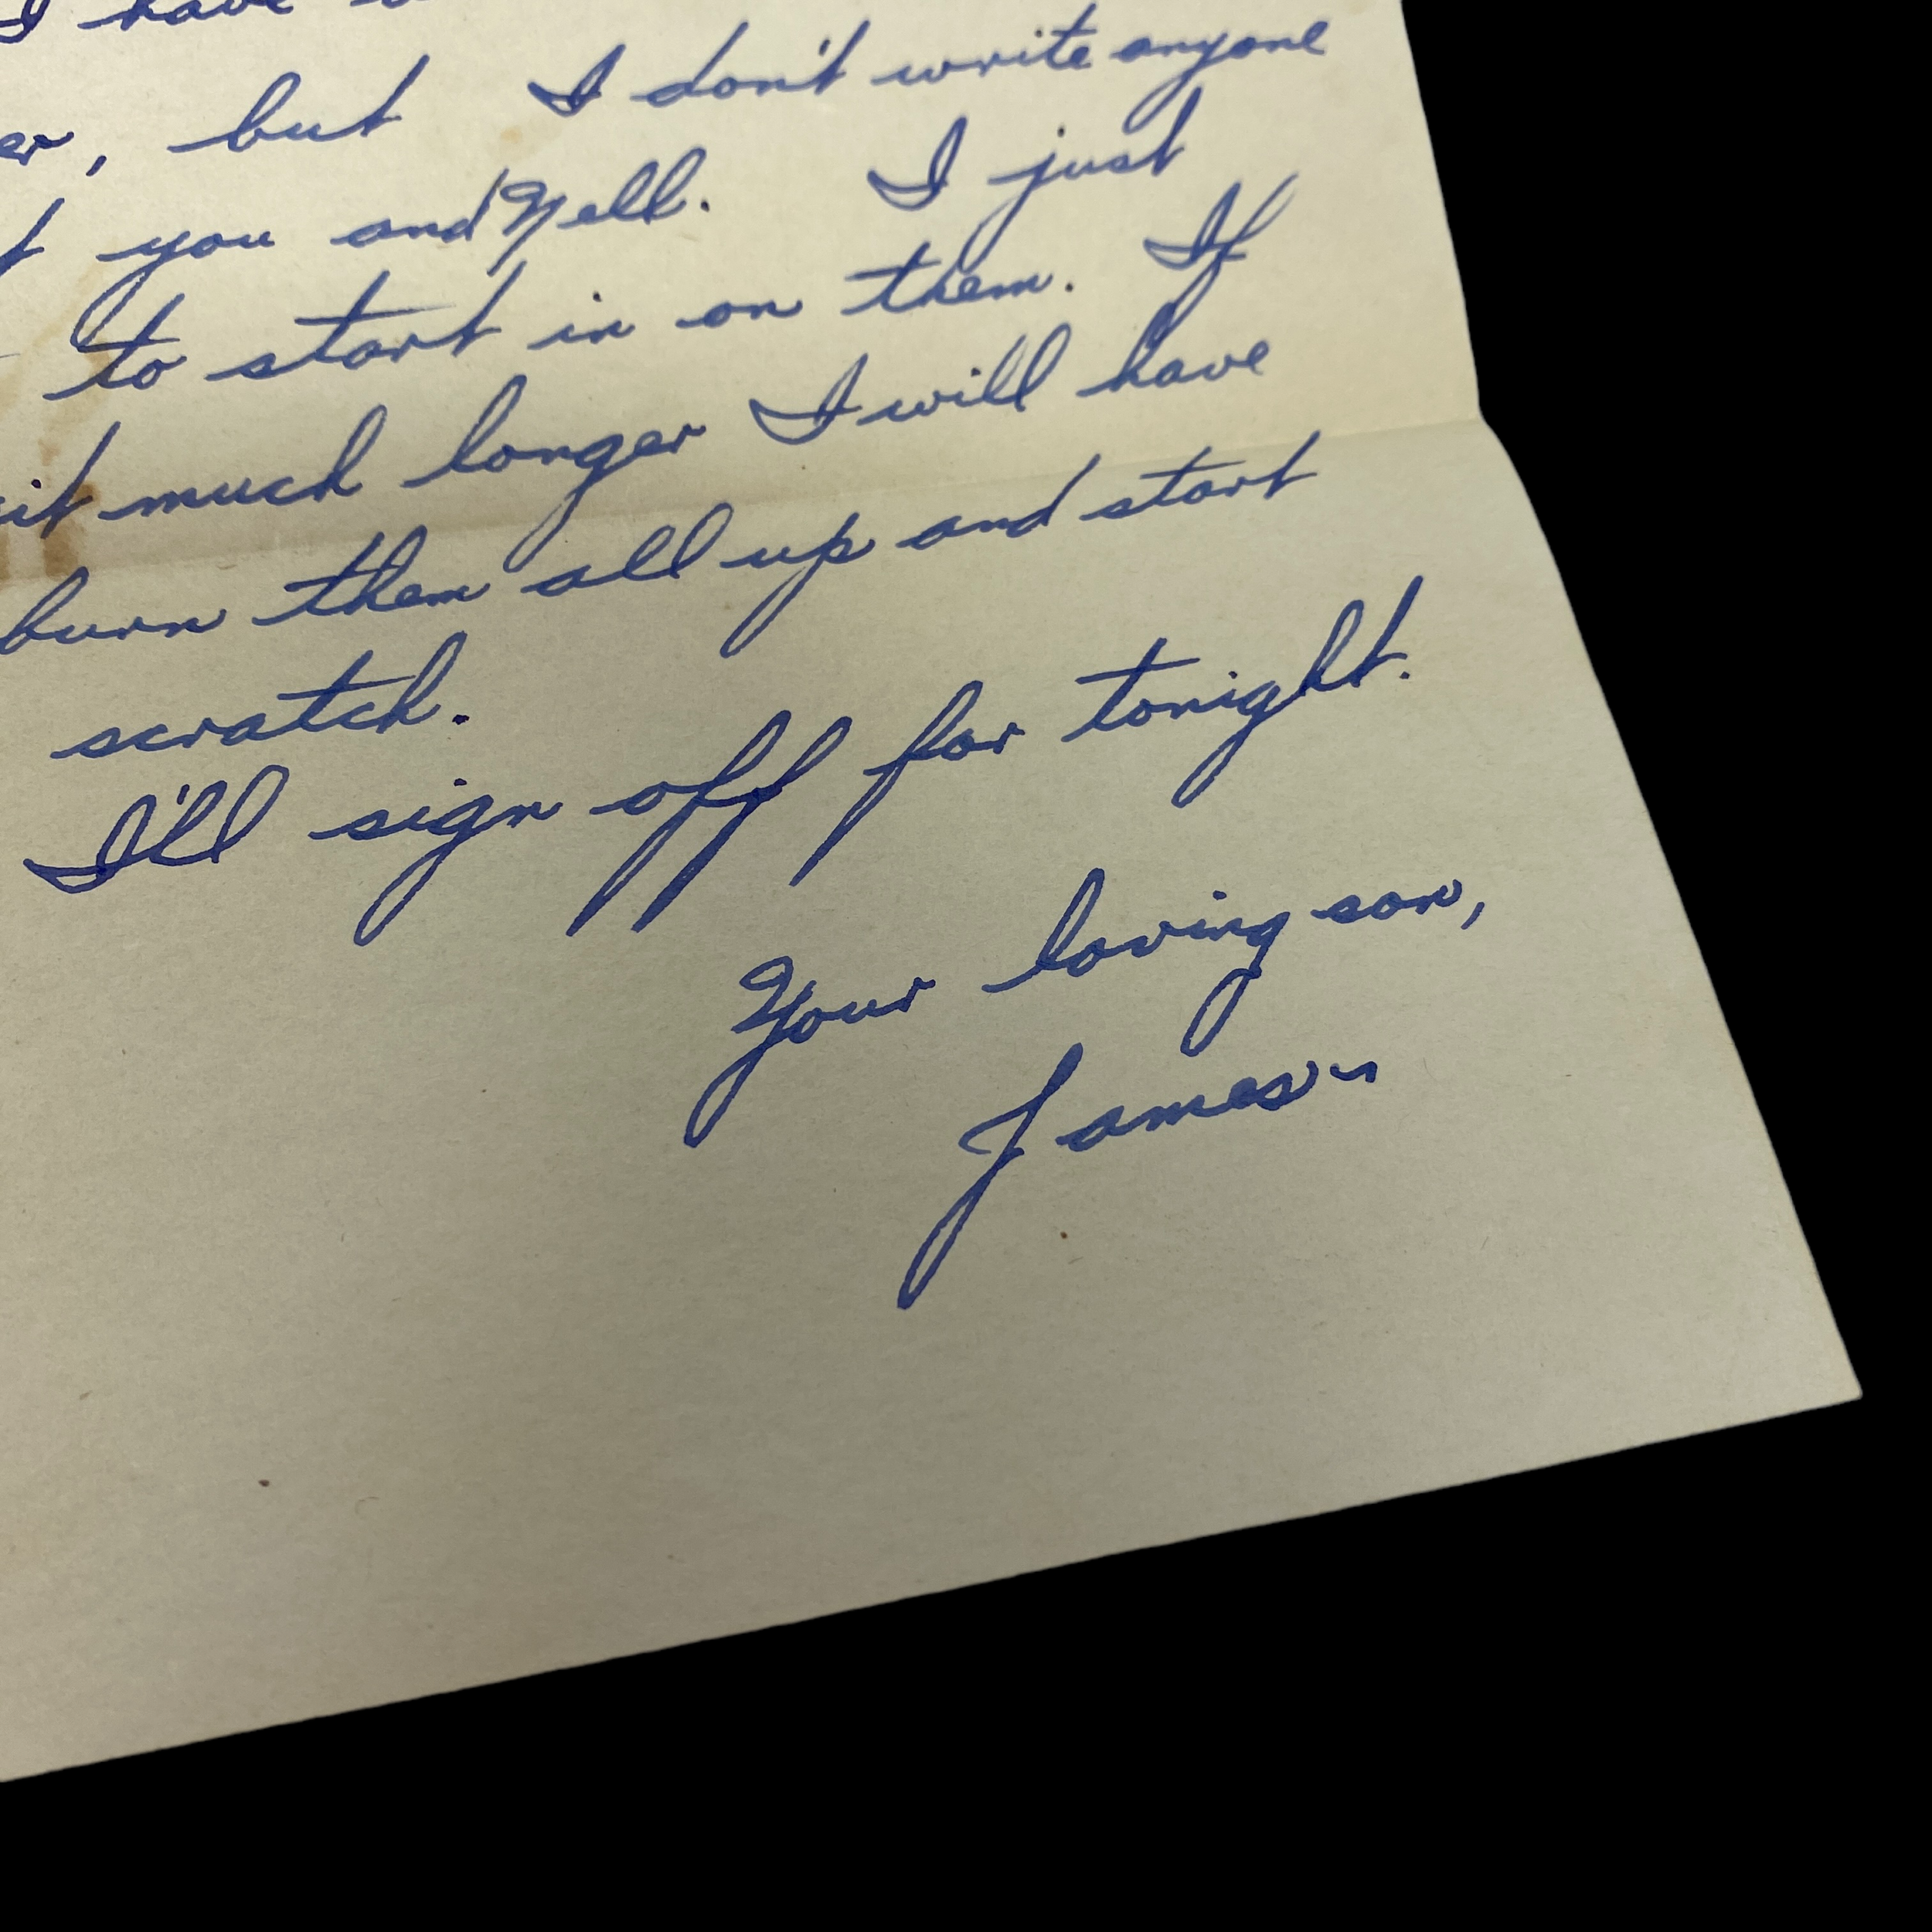 I have
er, but I don't write anyone
t you and Nell. I just
to start in on them. If
it much longer I will have
burn them all up and start
scratch.
I'll sign off for tonight.
Your loving son,
James~